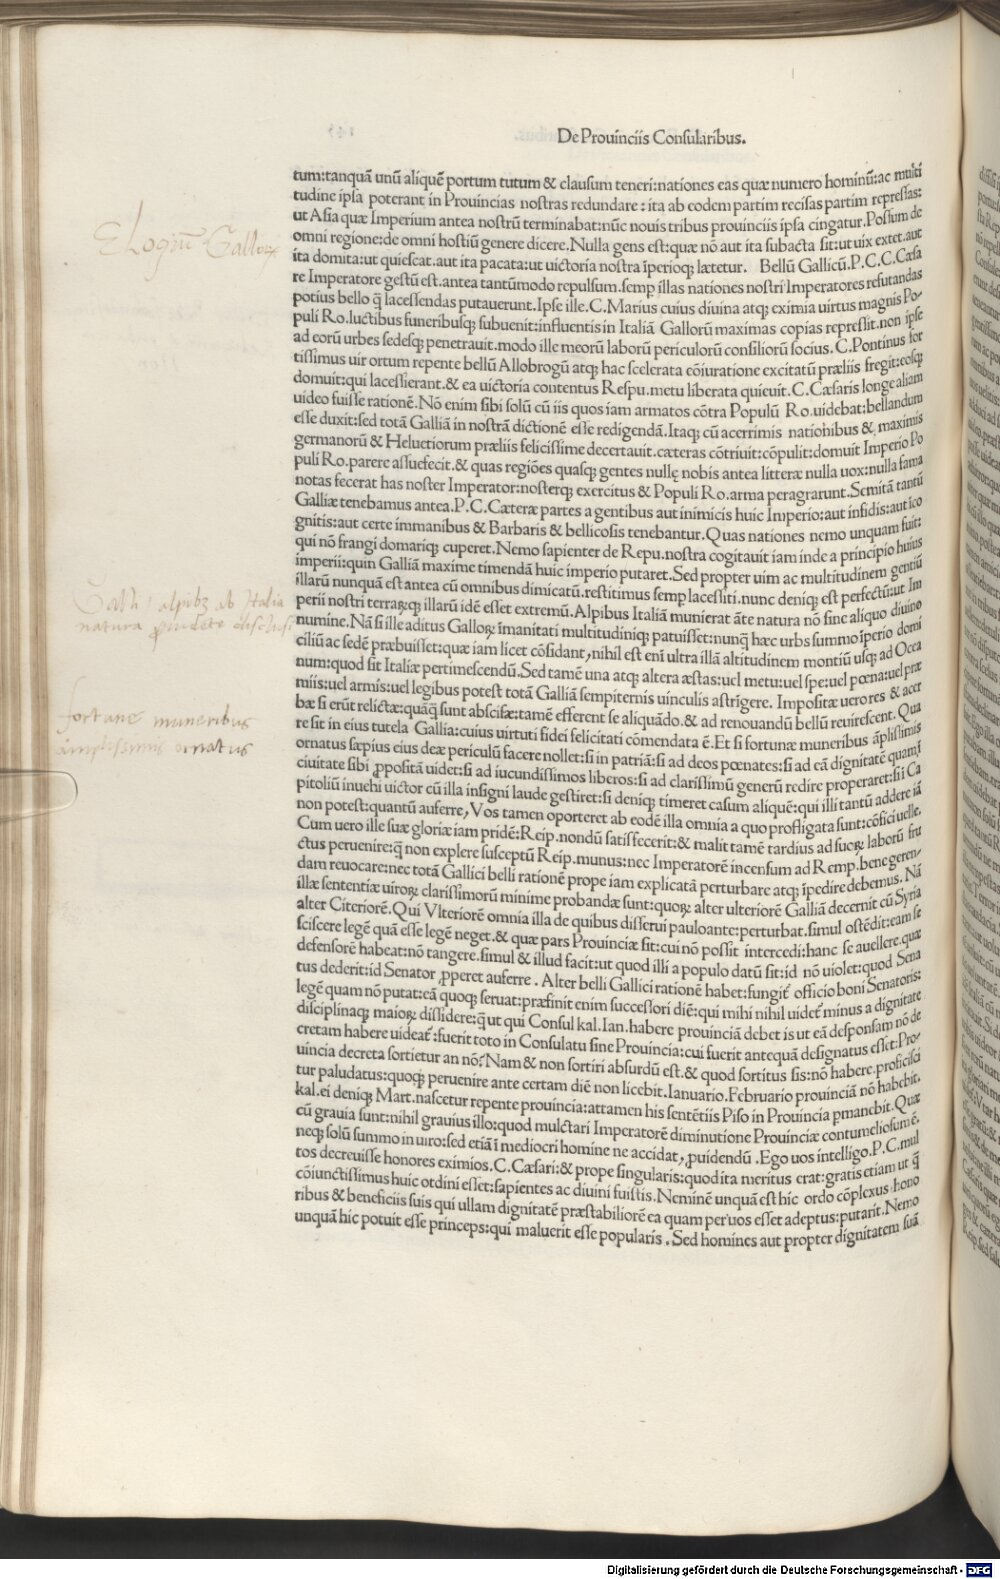 De Prouinciis Consularibus.
tum:tanquã unũ aliquẽ portum tutum & clausum teneri:nationes eas quæ numero hominũ:ac multi
tudine ipsa poterant in Prouincias nostras redundare: ita ab eodem partim recisas partim repressas:
ut Asia quæ Imperium antea nostrũ terminabat:nũc nouis tribus prouinciis ipsa cingatur. Possum de
omni regione:de omni hostiũ genere dicere. Nulla gens est:quæ nõ aut ita subacta sit:ut uix extet.aut
ita domita:ut quiescat.aut ita pacata:ut uictoria nostra ĩperioq; lætetur. Bellũ Gallicũ.P.C.C.Cæsa
re Imperatore gestũ est.antea tantũmodo repulsum.semp illas nationes nostri Imperatores refutandas
potius bello q̃ lacessendas putauerunt.Ipse ille.C.Marius cuius diuina atq; eximia uirtus magnis Po-
puli Ro.luctibus funeribusq; subuenit:influentis in Italiã Gallorũ maximas copias repressit.non ipse
ad eorũ urbes sedesq; penetrauit.modo ille meorũ laborũ periculorũ consiliorũ socius.C.Pontinus for
tissimus uir ortum repente bellũ Allobrogũ atq; hac scelerata cõiuratione excitatũ præliis fregit:eosq;
domuit:qui lacessierant.& ea uictoria contentus Respu.metu liberata quieuit.C.Cæsaris longe aliam
uideo fuisse rationẽ.Nõ enim sibi solũ cũ iis quos iam armatos cõtra Populũ Ro.uidebat:bellandum
esse duxit:sed totã Galliã in nostrã dictionẽ esse redigendã.Itaq; cũ acerrimis nationibus &, maximis
germanorũ & Heluetiorum præliis felicissime decertauit.cæteras cõtriuit:cõpulit:domuit Imperio Po
puli Ro.parere assuefecit.& quas regiões quasq; gentes nullę nobis antea litteræ nulla uox:nulla fama
notas fecerat has noster Imperator:nosterq; exercitus & Populi Ro.arma peragrarunt.Semitã tantũ
Galliæ tenebamus antea.P.C.Cæteræ partes a gentibus aut inimicis huic Imperio:aut infidis:aut ĩco
gnitis:aut certe immanibus & Barbaris & bellicosis tenebantur.Quas nationes nemo unquam fuit:
qui nõ frangi domariq; cuperet.Nemo sapienter de Repu.nostra cogitauit iam inde a principio huius
imperii:quin Galliã maxime timendã huic imperio putaret.Sed propter uim ac multitudinem gentiũ
illarũ nunquã est antea cũ omnibus dimicatũ.restitimus semp lacessiti.nunc deniq; est perfectũ:ut Im
perii nostri terraꝝq; illarũ idẽ esset extremũ.Alpibus Italiã munierat ãte natura nõ sine aliquo diuino
numine.Nã si ille aditus Galloꝝ ĩmanitati multitudiniq; patuisset:nunq̃ hæc urbs summo ĩperio domi
ciliũ ac sedẽ præbuisset:quæ iam licet cõsidant,nihil est enĩ ultra illã altitudinem montiũ usq; ad Ocea
num:quod sit Italiæ pertimescendũ.Sed tamẽ una atq; altera æstas:uel metu:uel spe:uel pœna:uel præ
miis:uel armis:uel legibus potest totã Galliã sempiternis uinculis astrĩgere. Impositæ uero res & acer
bæ si erũt relictæ:quãq̃ sunt abscisæ:tamẽ efferent se aliquãdo.& ad renouandũ bellũ reuirescent. Qua
re sit in eius tutela Gallia:cuius uirtuti fidei felicitati cõmendata ẽ.Et si fortunæ muneribus ãplissimis
ornatus sæpius eius deæ periculũ facere nollet:si in patriã:si ad deos pœnates:si ad eã dignitatẽ quamĩ
ciuitate sibi ꝓpositã uidet:si ad iucundissimos liberos:si ad clarissimũ generũ redire properaret:si ĩ Ca
pitoliũ inuehi uictor cũ illa insigni laude gestiret:si deniq; timeret casum aliquẽ:qui illi tantũ addere iã
non potest:quantũ auferre, Vos tamen oporteret ab eodẽ illa omnia a quo profligata sunt:cõfici uelle.
Cum uero ille suæ gloriæ iam pridẽ:Reip.nondũ satisfecerit:& malit tamẽ tardius ad suoꝝ laborũ fru
ctus peruenire:q̃ non explere susceptũ Reip.munus:nec Imperatorẽ incensum ad Remp.bene geren-
dam reuocare:nec totã Gallici belli rationẽ prope iam explicatã perturbare atq; ĩpedire debemus. Nã
illæ sententiæ uiroꝝ clarissimorũ minime probandæ sunt:quoꝝ alter ulteriorẽ Galliã decernit cũ Syria
alter Citeriorẽ.Qui Vlteriorẽ omnia illa de quibus disserui pauloante:perturbat.simul ostẽdit:eam se
sciscere legẽ quã esse legẽ neget.& quæ pars Prouinciæ sit:cui nõ possit intercedi:hanc se auellere.quæ
defensorẽ habeat:nõ tangere.simul & illud facit:ut quod illi a populo datũ sit:id nõ uiolet:quod Sena
tus dederit:id Senator ꝓperet auferre. Alter belli Gallici rationẽ habet:fungit̃ officio boni Senatoris:
legẽ quam nõ putat:eã quoq; seruat:præfinit enim successori diẽ:qui mihi nihil uidet̃ minus a dignitate
disciplinaq; maioꝝ dissidere:q̃ ut qui Consul kal.Ian.habere prouinciã debet is ut eã desponsam nõ de
cretam habere uideat̃:fuerit toto in Consulatu sine Prouincia:cui fuerit antequã designatus esset:Pro-
uincia decreta sortietur an nõ? Nam & non sortiri absurdũ est.& quod sortitus sis:nõ habere.proficisci
tur paludatus:quoq; peruenire ante certam diẽ non licebit.Ianuario.Februario prouinciã nõ habebit.
kal.ei deniq; Mart.nascetur repente prouincia:attamen his sentẽtiis Piso in Prouincia pmanebit.Quæ
cũ grauia sunt:nihil grauius illo:quod mulctari Imperatorẽ diminutione Prouinciæ contumeliosum ẽ.
neq; solũ summo in uiro:sed etiã ĩ mediocri homine ne accidat, ꝓuidendũ.Ego uos intelligo.P.C.mul
tos decreuisse honores eximios.C.Cæsari:& prope singularis:quod ita meritus erat:gratis etiam ut q̃
cõiunctissimus huic ordini esset:sapientes ac diuini fuistis.Neminẽ unquã est hic ordo cõplexus hono
ribus & beneficiis suis qui ullam dignitatẽ præstabiliorẽ ea quam per uos esset adeptus:putarit.Nemo
unquã hic potuit esse princeps:qui maluerit esse popularis. Sed homines aut propter dignitatem suã
Elogiũ Galloꝝ
Galli alpibꝫ ab Italia
natura ꝓuidẽte disclusi
fortunę muneribus
amplissimis ornatus
Digitalisierung gefördert durch die Deutsche Forschungsgemeinschaft - DFG